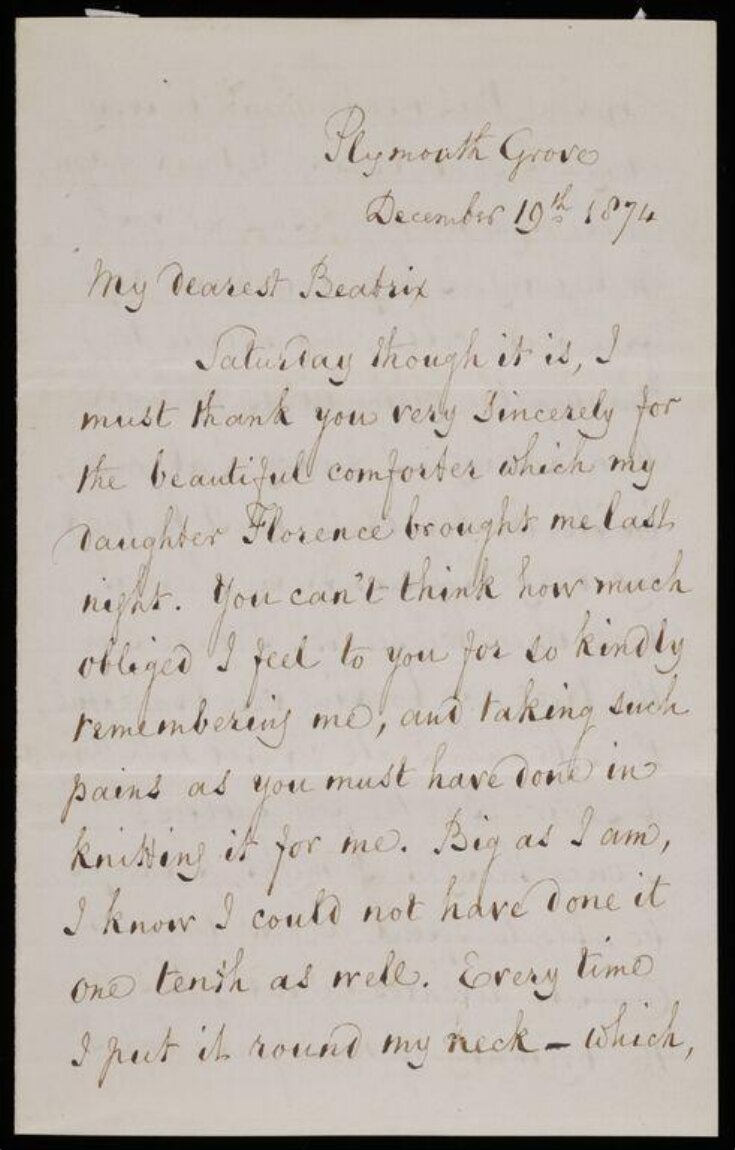 Plymouth Grove
December 19th 1874
My dearest Beatrix
Saturday though it is, I
must thank you very sincerely for
the beautiful comforter which my
daughter Florence brought me last
night. You can't think how much
obliged I feel to you for so kindly
remembering me, and taking such
pains as you must have done in
knitting it for me. Big as I am,
I know I could not have done it
one tenth as well. Every time
I put it round my neck – which,